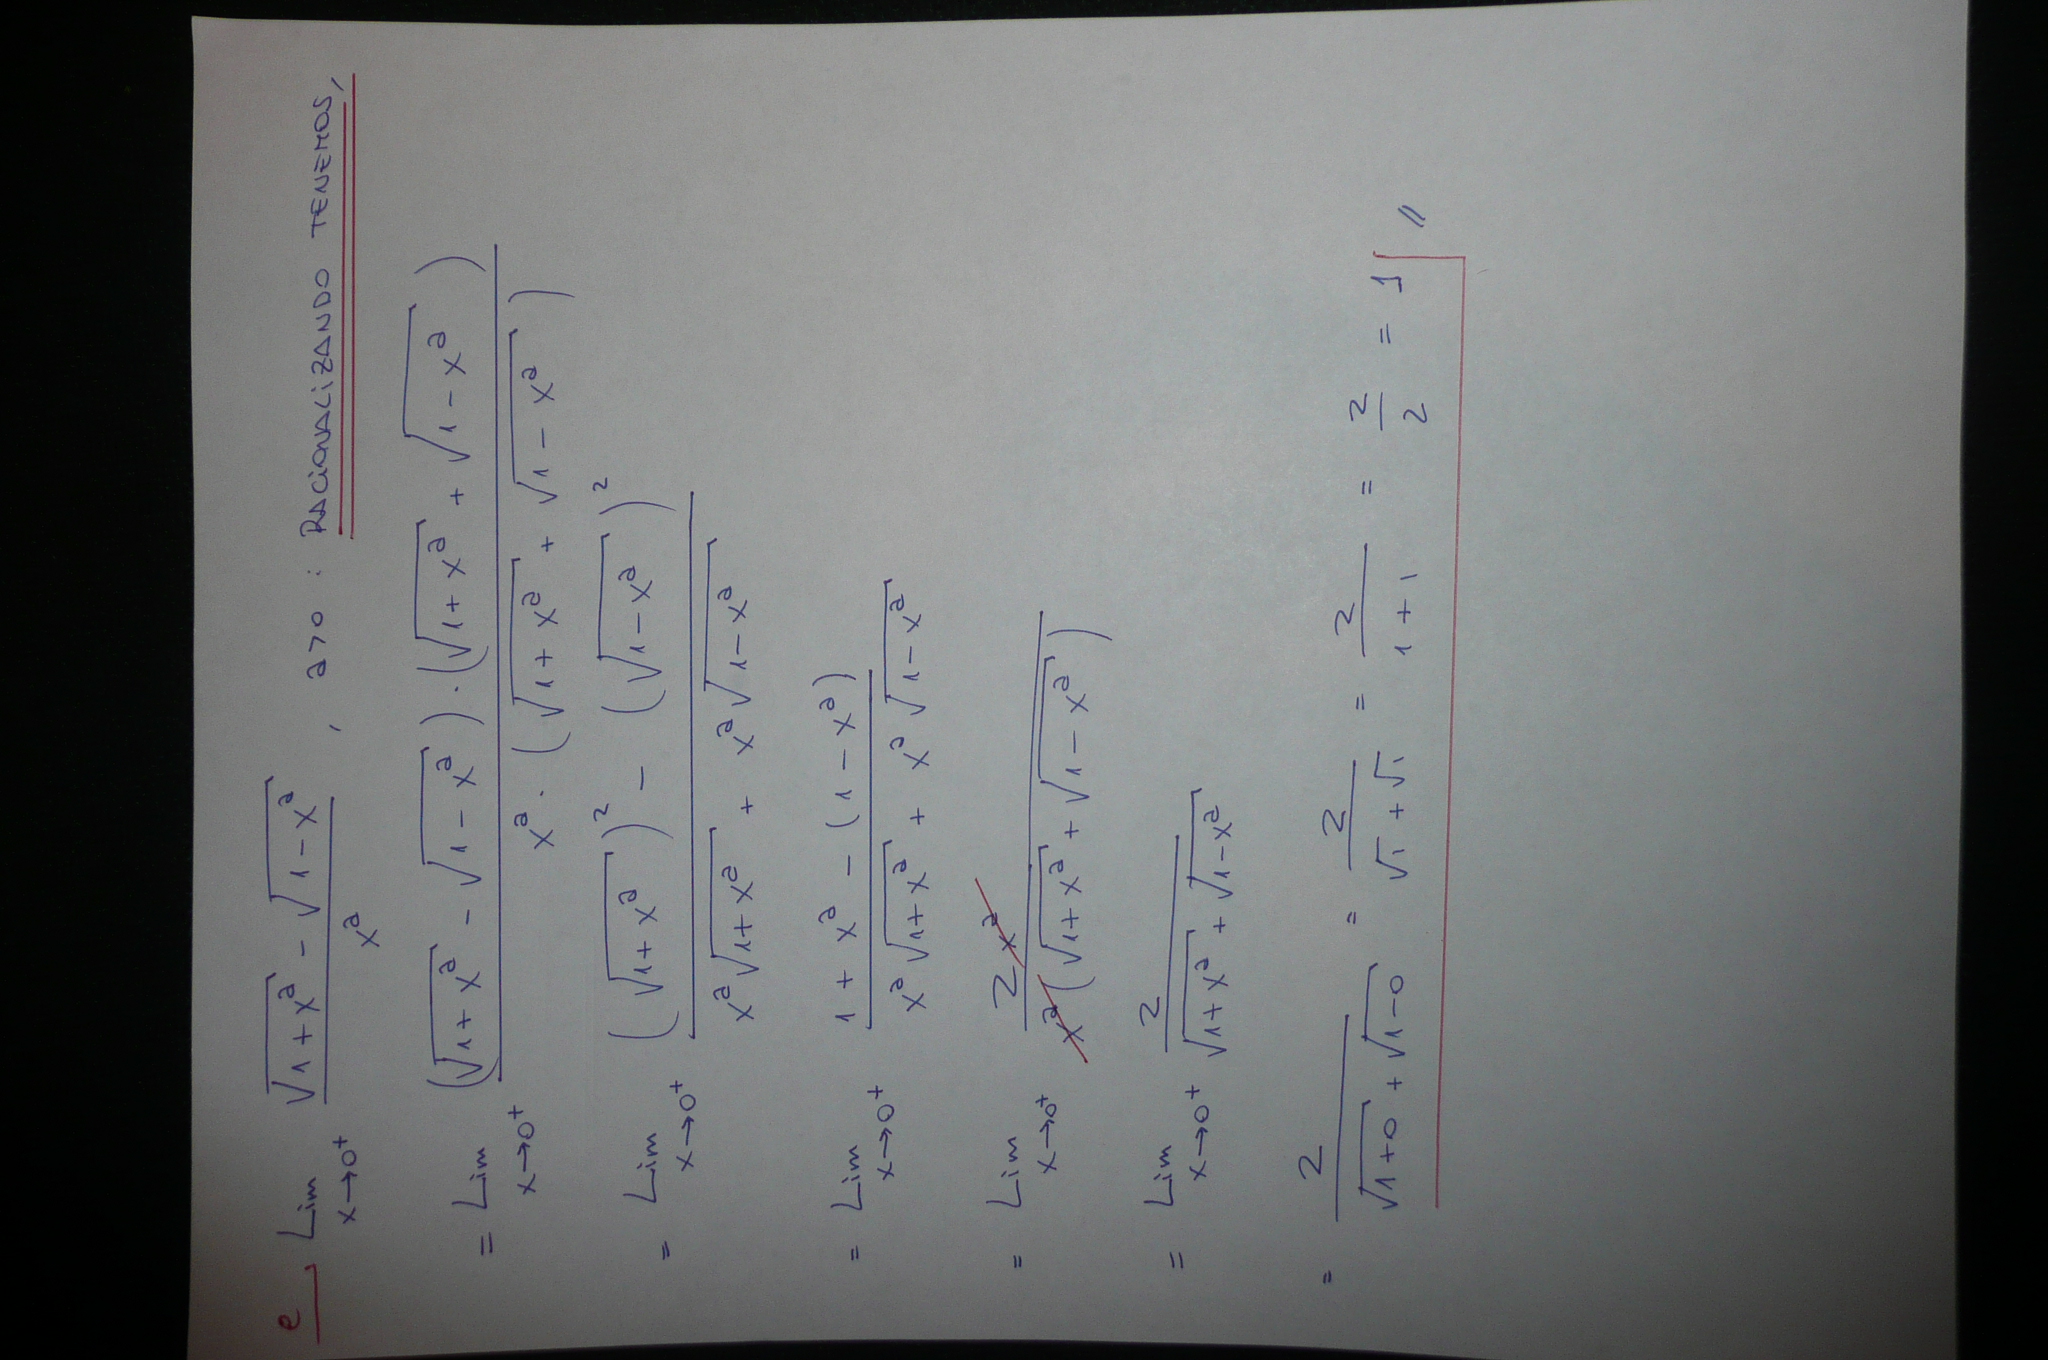 e) Lim x→0⁺ (√(1+x^a) - √(1-x^a)) / x^a , a>0 : RACIONALIZANDO TENEMOS,
= Lim x→0⁺ ((√(1+x^a) - √(1-x^a)) · (√(1+x^a) + √(1-x^a))) / (x^a · (√(1+x^a) + √(1-x^a)))
= Lim x→0⁺ ((√(1+x^a))² - (√(1-x^a))²) / (x^a √(1+x^a) + x^a √(1-x^a))
= Lim x→0⁺ (1+x^a - (1-x^a)) / (x^a √(1+x^a) + x^a √(1-x^a))
= Lim x→0⁺ 2x^a / (x^a (√(1+x^a) + √(1-x^a)))
= Lim x→0⁺ 2 / (√(1+x^a) + √(1-x^a))
= 2 / (√(1+0) + √(1-0)) = 2 / (√1 + √1) = 2 / (1+1) = 2/2 = 1 //